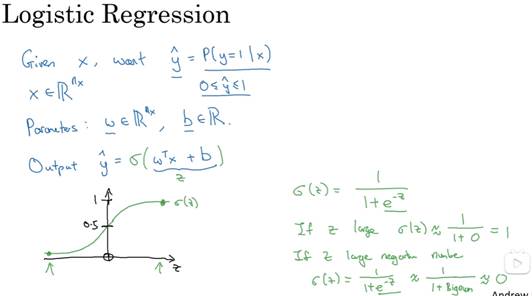 Logistic Regression
Given x, want ŷ = P(y=1|x)
x ∈ ℝⁿˣ 0 ≤ ŷ ≤ 1
Parameters: w ∈ ℝⁿˣ, b ∈ ℝ.
Output ŷ = σ(wᵀx + b)
z
1
σ(z)
0.5
0
z
σ(z) = 1 / (1+e⁻ᶻ)
If z large σ(z) ≈ 1 / (1+0) = 1
If z large negative number
σ(z) = 1 / (1+e⁻ᶻ) ≈ 1 / (1+Bignum) ≈ 0
Andrew